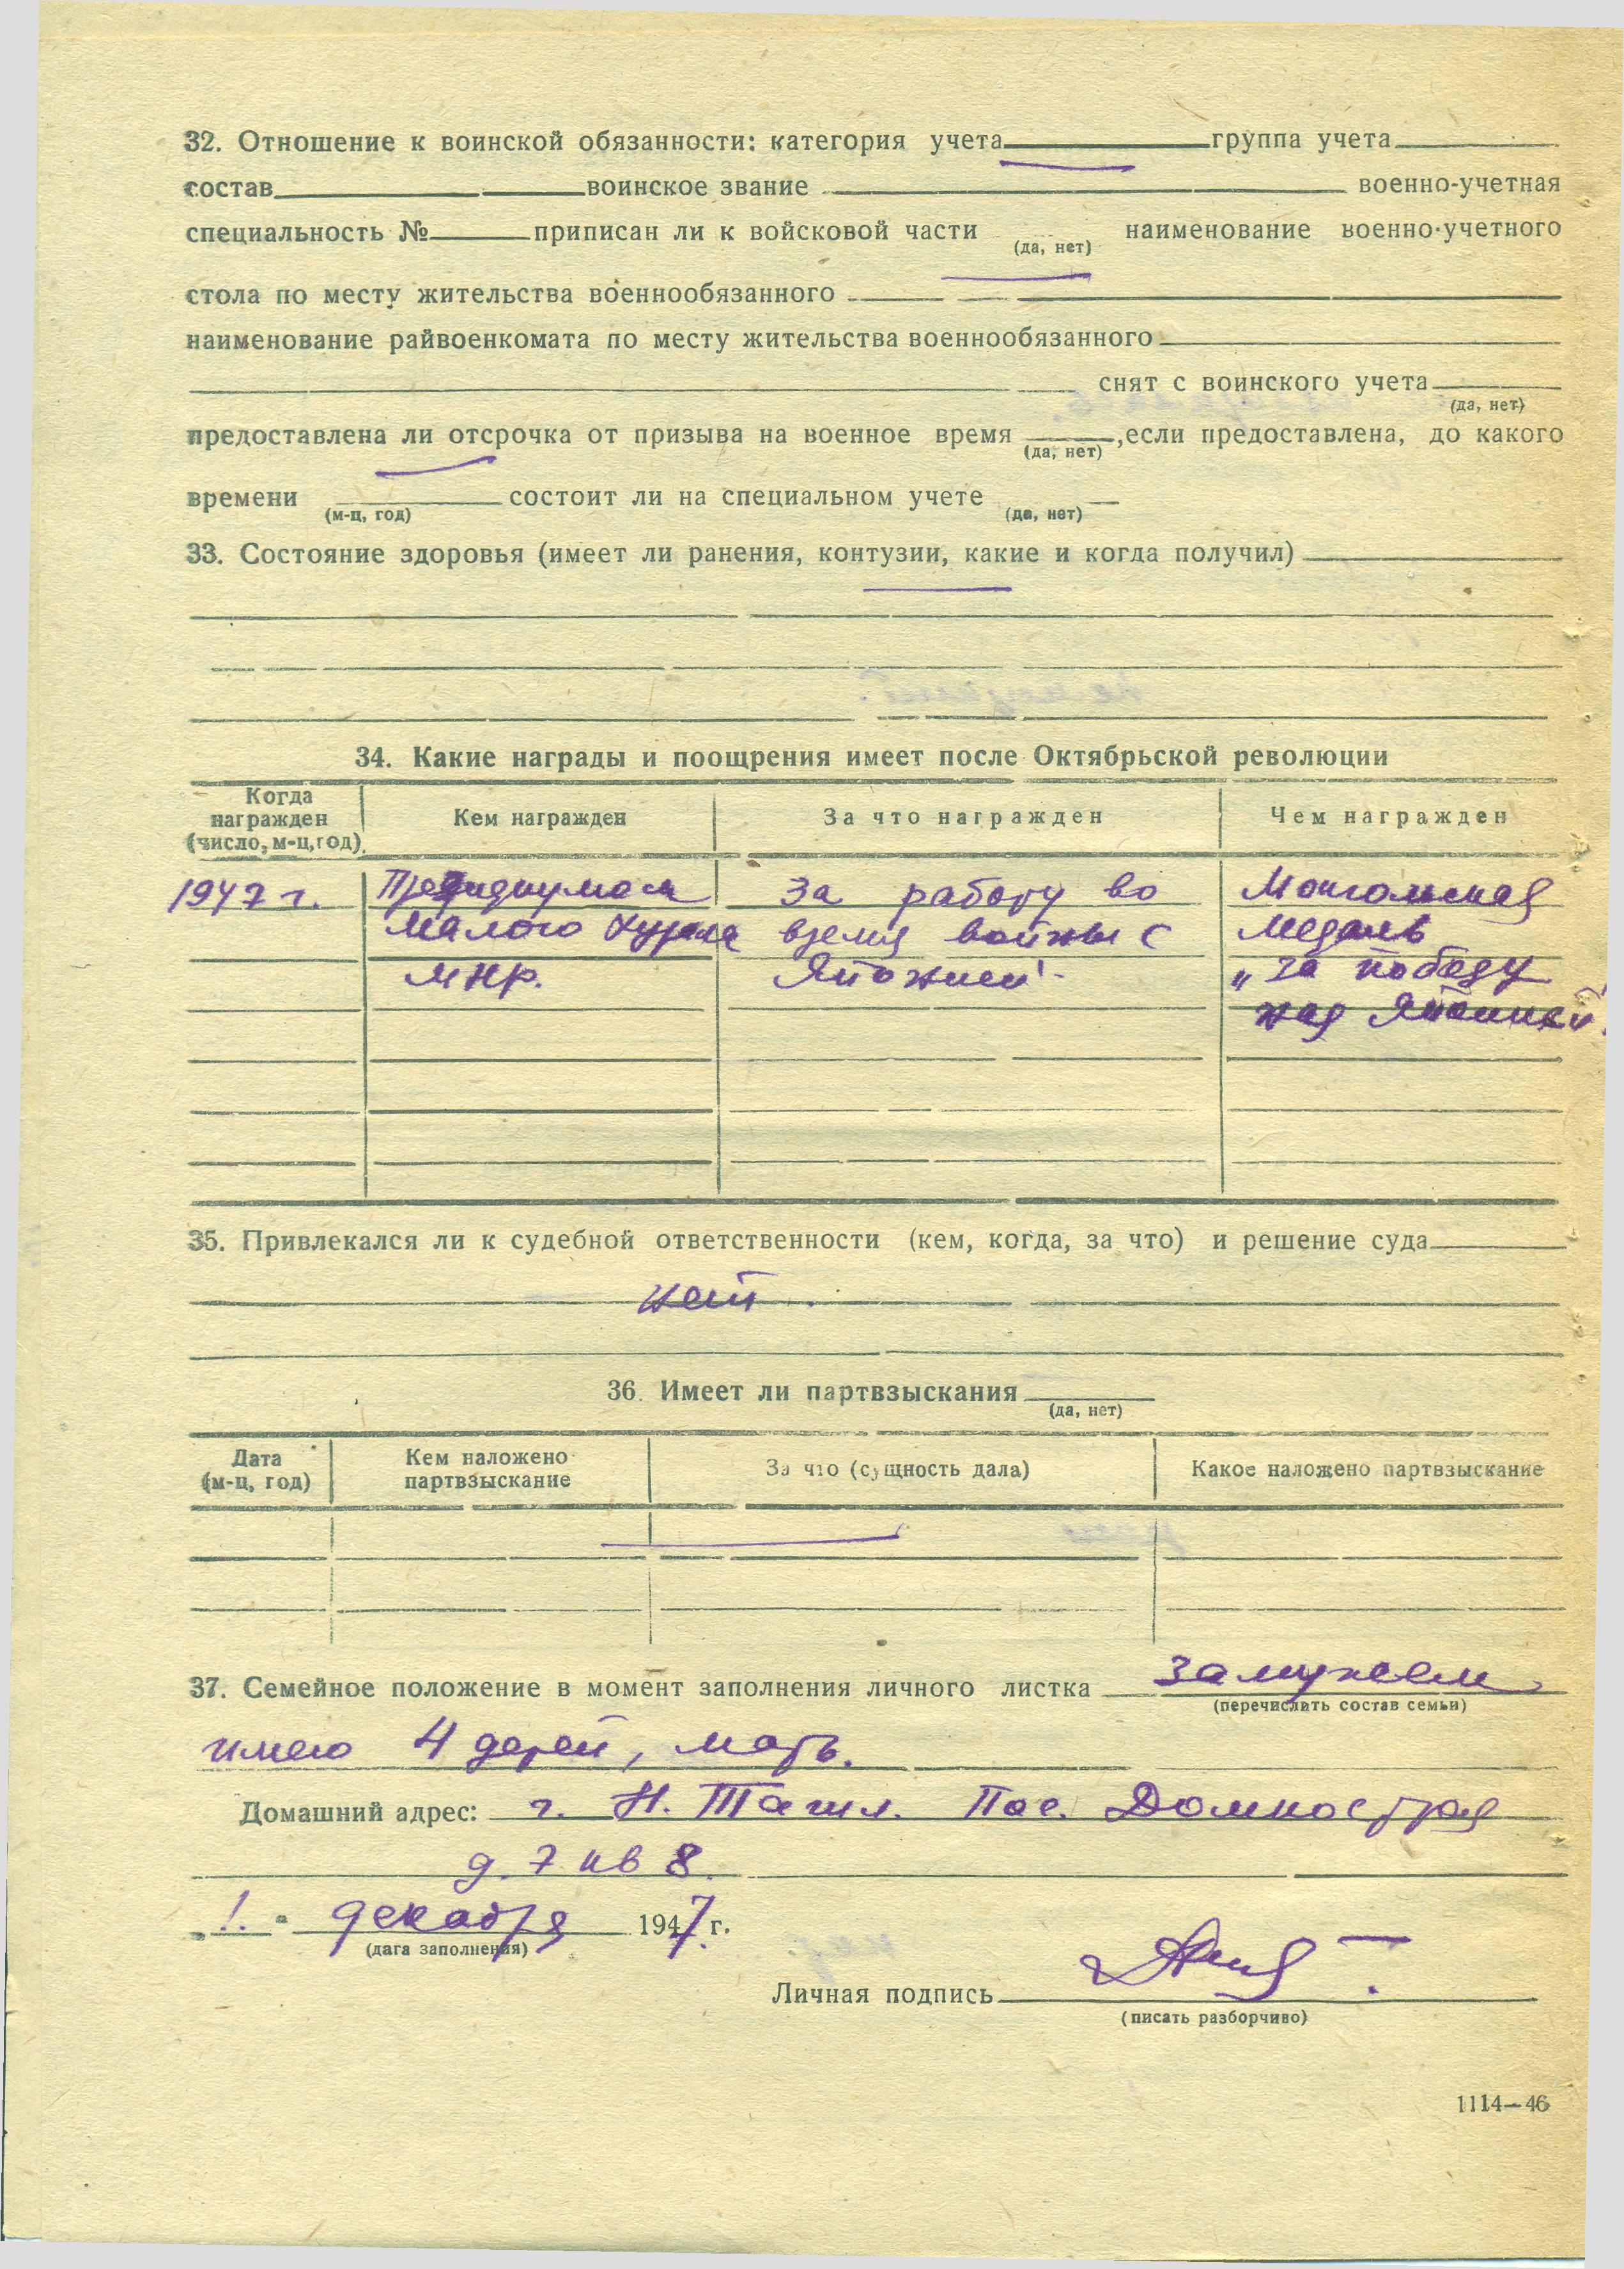 32. Отношение к воинской обязанности: категория учета группа учета
состав воинское звание военно-учетная
специальность № приписан ли к войсковой части наименование военно-учетного
(да, нет)
стола по месту жительства военнообязанного
наименование райвоенкомата по месту жительства военнообязанного
снят с воинского учета
(да, нет)
предоставлена ли отсрочка от призыва на военное время , если предоставлена, до какого
(да, нет)
времени состоит ли на специальном учете
(м-ц, год) (да, нет)
33. Состояние здоровья (имеет ли ранения, контузии, какие и когда получил)
34. Какие награды и поощрения имеет после Октябрьской революции
Когда награжден (число, м-ц, год) Кем награжден За что награжден Чем награжден
1947 г. Президиумом За работу во Монгольская
Малого Хурала время войны с медаль
МНР. Японией. „За победу
над Японией".
35. Привлекался ли к судебной ответственности (кем, когда, за что) и решение суда
нет.
36. Имеет ли партвзыскания
(да, нет)
Дата (м-ц, год) Кем наложено партвзыскание За что (сущность дала) Какое наложено партвзыскание
37. Семейное положение в момент заполнения личного листка замужем
(перечислить состав семьи)
имею 4 детей, мать.
Домашний адрес: г. Н. Тагил. Пос. Домностроя
д. 7 кв 8.
„1." декабря 1947 г.
(дата заполнения)
Личная подпись
(писать разборчиво)
1114—46